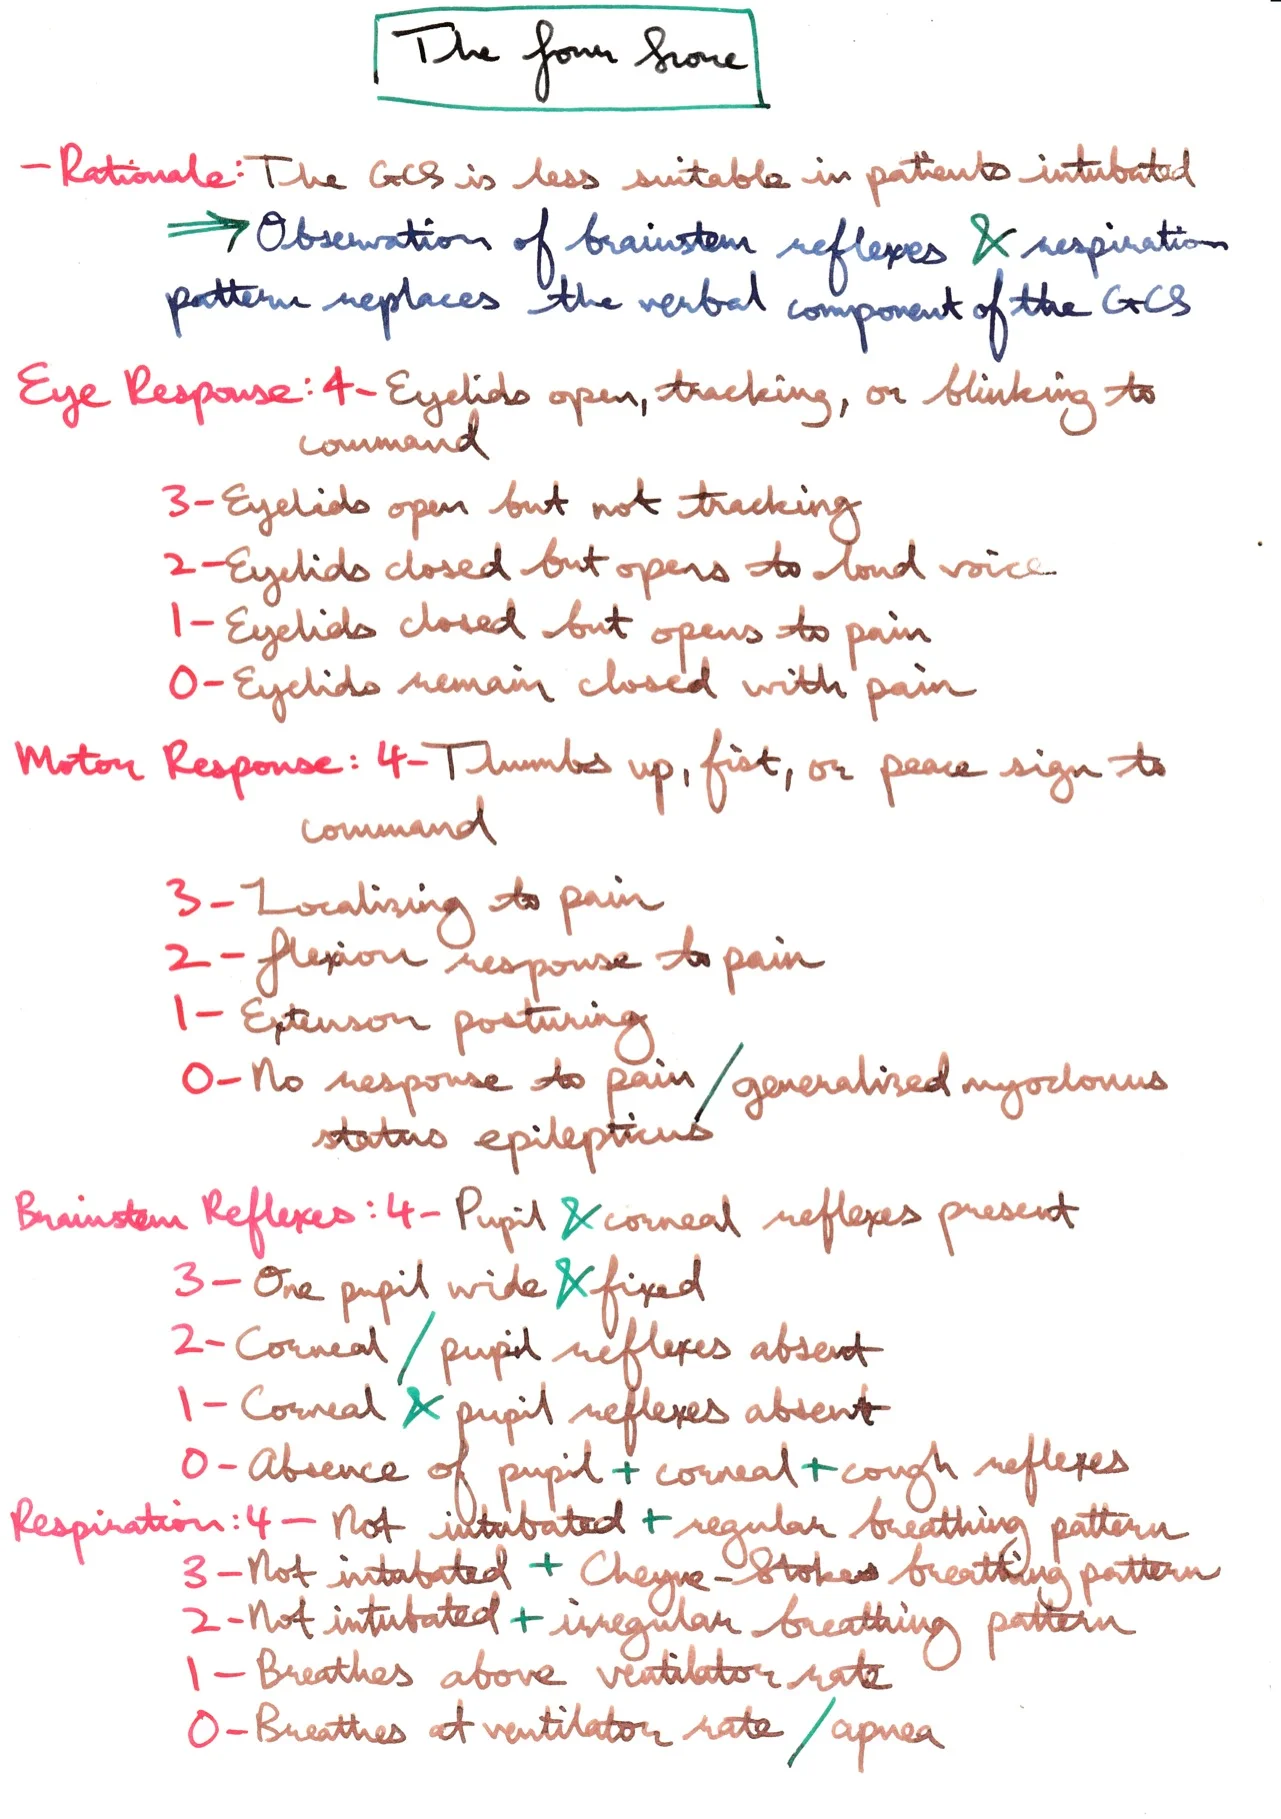 The four Score
- Rationale: The GCS is less suitable in patients intubated
⇒ Observation of brainstem reflexes & respiration
pattern replaces the verbal component of the GCS
Eye Response: 4- Eyelids open, tracking, or blinking to
command
3- Eyelids open but not tracking
2- Eyelids closed but opens to loud voice
1- Eyelids closed but opens to pain
0- Eyelids remain closed with pain
Motor Response: 4- Thumbs up, fist, or peace sign to
command
3- Localizing to pain
2- flexion response to pain
1- Extensor posturing
0- No response to pain / generalized myoclonus
status epilepticus
Brainstem Reflexes: 4- Pupil & corneal reflexes present
3- One pupil wide & fixed
2- Corneal / pupil reflexes absent
1- Corneal & pupil reflexes absent
0- Absence of pupil + corneal + cough reflexes
Respiration: 4- Not intubated + regular breathing pattern
3- Not intubated + Cheyne-Stokes breathing pattern
2- Not intubated + irregular breathing pattern
1- Breathes above ventilator rate
0- Breathes at ventilator rate / apnea